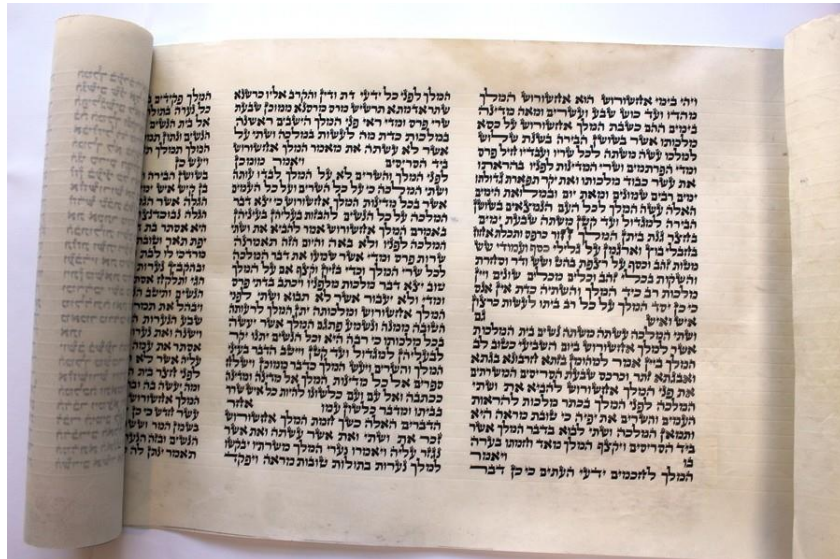 ויהי בימי אחשורוש הוא אחשורוש המלך
מהדו ועד כוש שבע ועשרים ומאה מדינה
בימים ההם כשבת המלך אחשורוש על כסא
מלכותו אשר בשושן הבירה בשנת שלוש
למלכו עשה משתה לכל שריו ועבדיו חיל פרס
ומדי הפרתמים ושרי המדינות לפניו בהראתו
את עשר כבוד מלכותו ואת יקר תפארת גדולתו
ימים רבים שמונים ומאת יום ובמלואת הימים
האלה עשה המלך לכל העם הנמצאים בשושן
הבירה למגדול ועד קטן משתה שבעת ימים
בחצר גנת ביתן המלך חור כרפס ותכלת אחוז
בחבלי בוץ וארגמן על גלילי כסף ועמודי שש
מטות זהב וכסף על רצפת בהט ושש ודר וסחרת
והשקות בכלי זהב וכלים מכלים שונים ויין
מלכות רב כיד המלך והשתיה כדת אין אנס
כי כן יסד המלך על כל רב ביתו לעשות כרצון
איש ואיש גם
ושתי המלכה עשתה משתה נשים בית המלכות
אשר למלך אחשורוש ביום השביעי כטוב לב
המלך ביין אמר למהומן בזתא חרבונא בגתא
ואבגתא זתר וכרכס שבעת הסריסים המשרתים
את פני המלך אחשורוש להביא את ושתי
המלכה לפני המלך בכתר מלכות להראות
העמים והשרים את יפיה כי טובת מראה היא
ותמאן המלכה ושתי לבוא בדבר המלך אשר
ביד הסריסים ויקצף המלך מאד וחמתו בערה
בו ויאמר
המלך לחכמים ידעי העתים כי כן דבר
המלך לפני כל ידעי דת ודין והקרב אליו כרשנא
שתר אדמתא תרשיש מרס מרסנא ממוכן שבעת
שרי פרס ומדי ראי פני המלך הישבים ראשנה
במלכות כדת מה לעשות במלכה ושתי על
אשר לא עשתה את מאמר המלך אחשורוש
ביד הסריסים ויאמר מומכן
לפני המלך והשרים לא על המלך לבדו עותה
ושתי המלכה כי על כל השרים ועל כל העמים
אשר בכל מדינות המלך אחשורוש כי יצא דבר
המלכה על כל הנשים להבזות בעליהן בעיניהן
באמרם המלך אחשורוש אמר להביא את ושתי
המלכה לפניו ולא באה והיום הזה תאמרנה
שרות פרס ומדי אשר שמעו את דבר המלכה
לכל שרי המלך וכדי בזיון וקצף אם על המלך
טוב יצא דבר מלכות מלפניו ויכתב בדתי פרס
ומדי ולא יעבור אשר לא תבוא ושתי לפני
המלך אחשורוש ומלכותה יתן המלך לרעותה
הטובה ממנה ונשמע פתגם המלך אשר יעשה
בכל מלכותו כי רבה היא וכל הנשים יתנו יקר
לבעליהן למגדול ועד קטן וייטב הדבר בעיני
המלך והשרים ויעש המלך כדבר ממוכן וישלח
ספרים אל כל מדינות המלך אל מדינה ומדינה
ככתבה ואל עם ועם כלשונו להיות כל איש שרר
בביתו ומדבר כלשון עמו אחר
הדברים האלה כשך חמת המלך אחשורוש
זכר את ושתי ואת אשר עשתה ואת אשר
נגזר עליה ויאמרו נערי המלך משרתיו יבקשו
למלך נערות בתולות טובות מראה ויפקד
המלך פקידים
כל נערה בתולה
אל בית הנשים
הנשים ונתון
המלך תמלך
ויעש כן
בשושן הבירה
בן קיש איש
הגלה אשר
הגלה נבוכדנצר
היא אסתר בת
יפת תאר וטובת
מרדכי לו לבת
ובהקבץ נערות
הגי ותלקח אסתר
הנשים ותיטב
ויבהל את
שבע הנערות
וישנה ואת
אסתר את עמה
עליה אשר לא
לפני חצר בית
ומה יעשה בה
המלך אחשורוש
עשר חדש כי כן
בשמן המר וששה
הנשים ובזה הנערה
תאמר ינתן לה